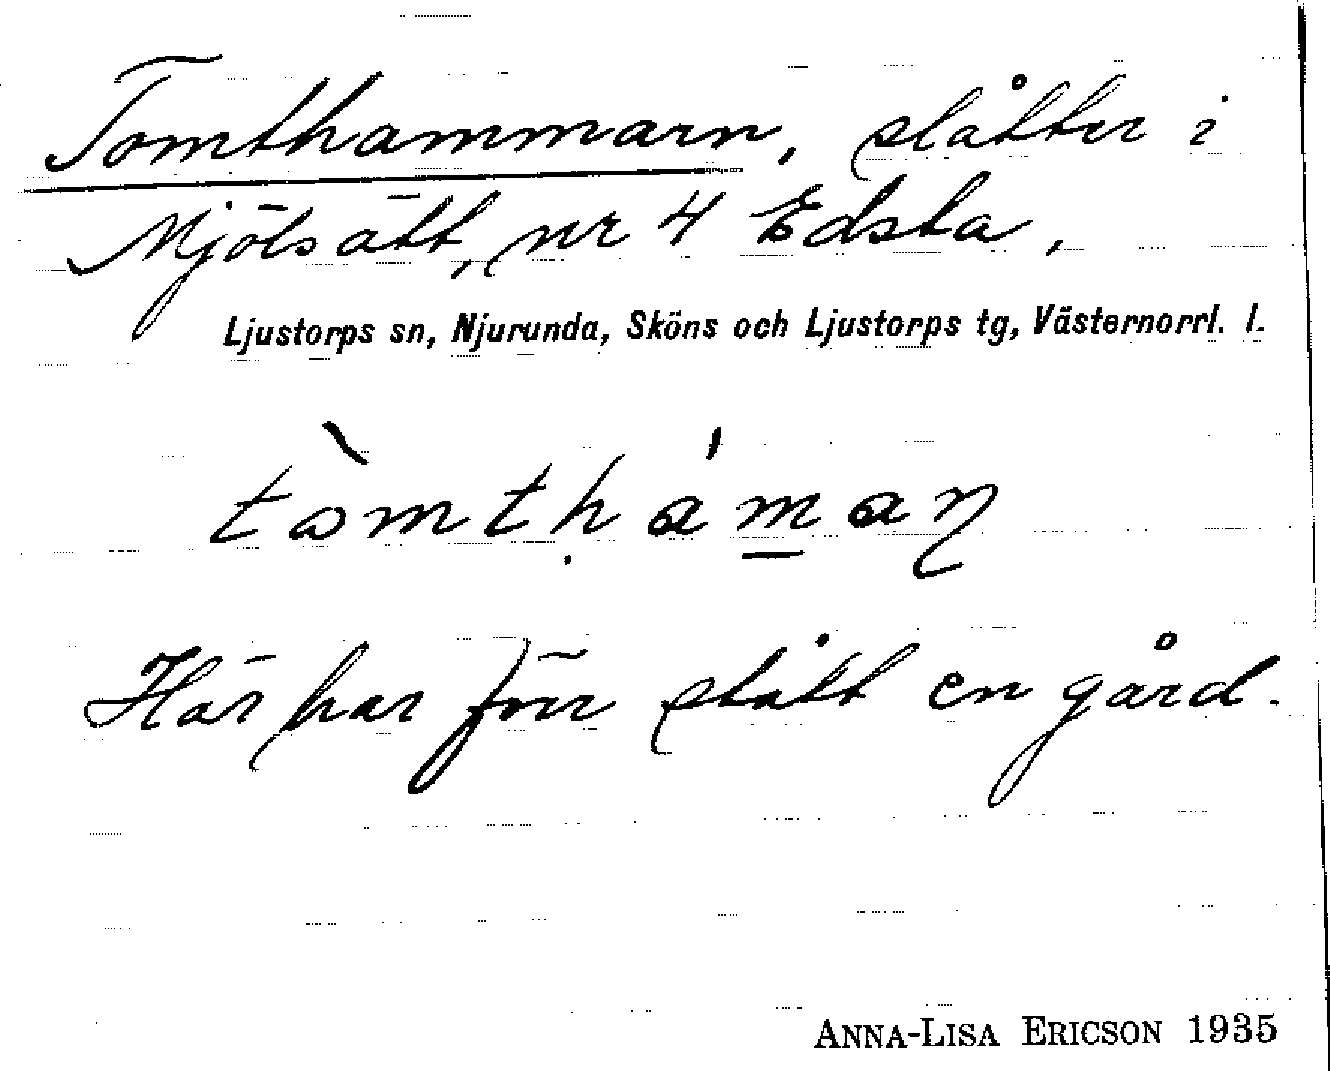 Tomthammarn, slåtter i
Mjölsätt, nr 4 Edsta,
Ljustorps sn, Njurunda, Sköns och Ljustorps tg, Västernorrl. l.
tòmtḥám̲an
Här har förr stått en gård.
ANNA-LISA ERICSON 1935